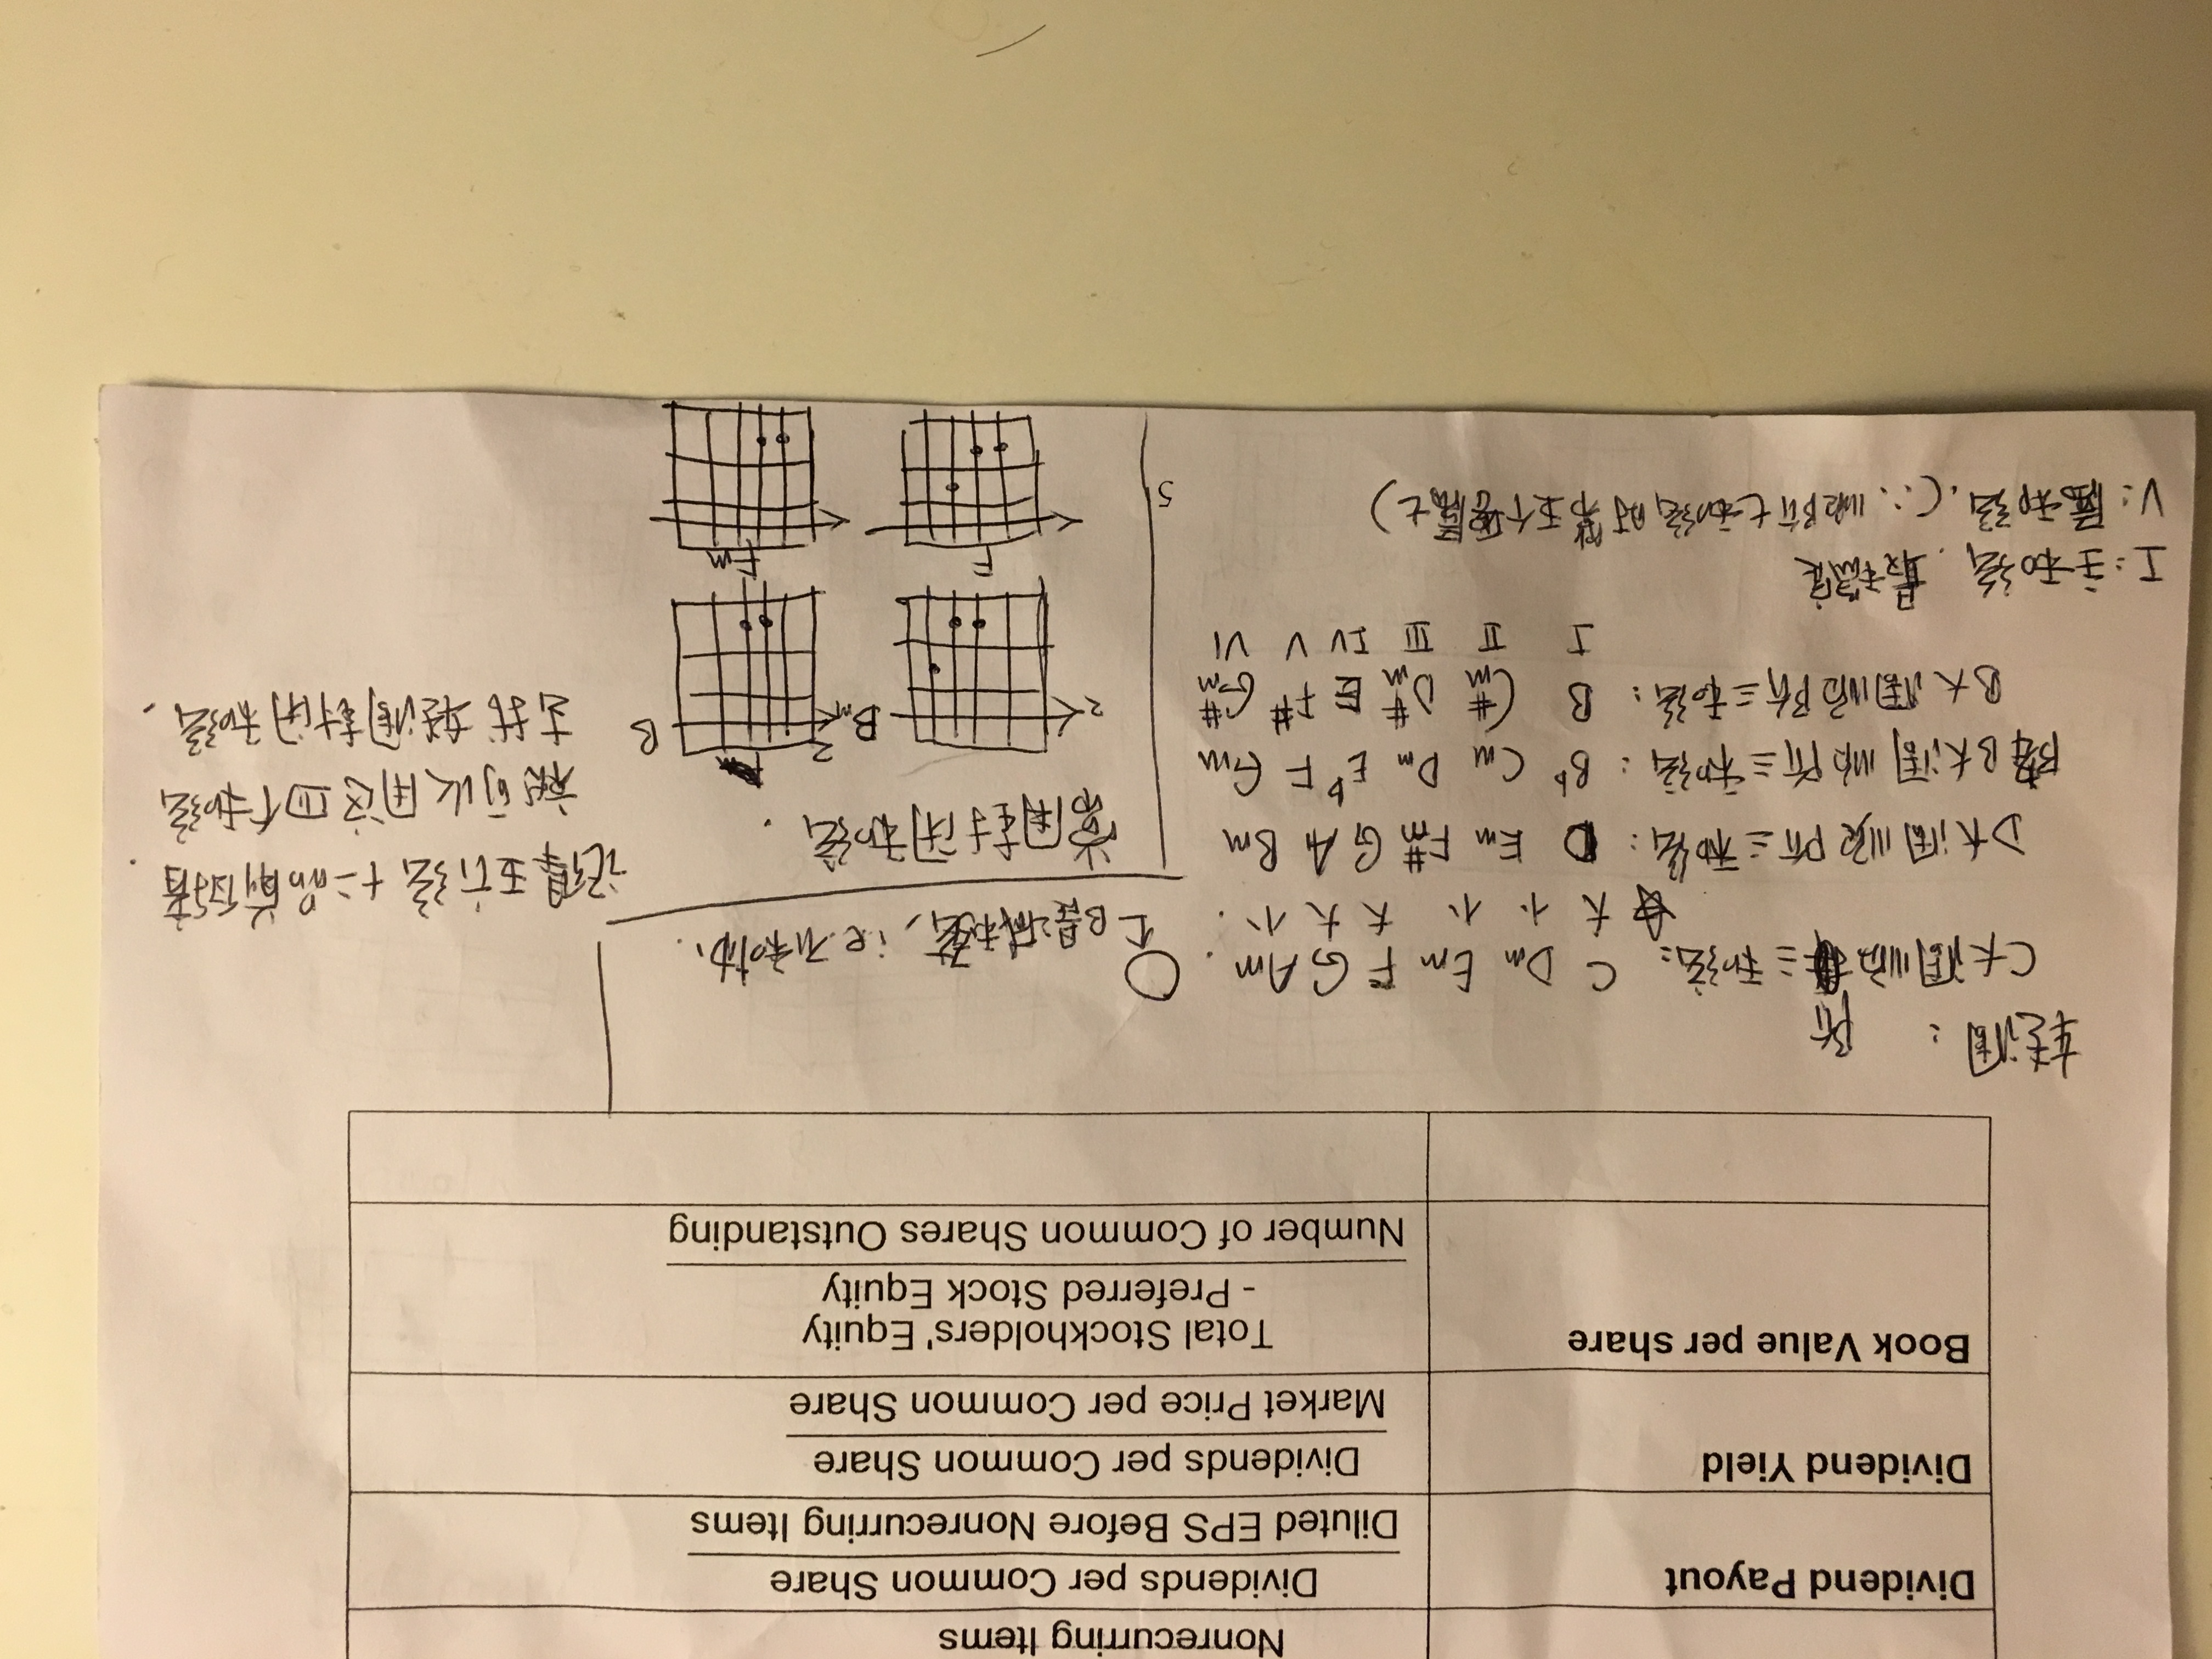 Nonrecurring Items
Dividend Payout
Dividends per Common Share
Diluted EPS Before Nonrecurring Items
Dividend Yield
Dividends per Common Share
Market Price per Common Share
Book Value per share
Total Stockholders' Equity
- Preferred Stock Equity
Number of Common Shares Outstanding
转调:
C大调顺阶三和弦: C Dm Em F G Am.
大 小 小 大 大 小.
D大调顺阶三和弦: D Em F#m G A Bm
降B大调顺阶三和弦: Bb Cm Dm Eb F Gm
B大调顺阶三和弦: B C#m D#m E F# G#m
I II III IV V VI
I: 主和弦. 最稳定
V: 属和弦. (∵顺阶七和弦时第五个是属七)
5
B是减和弦, i.e. 不和协.
常用封闭和弦.
2
Bm
2
B
F
Fm
记得五六弦十二品的音
就可以用这四个和弦
去找转调封闭和弦.